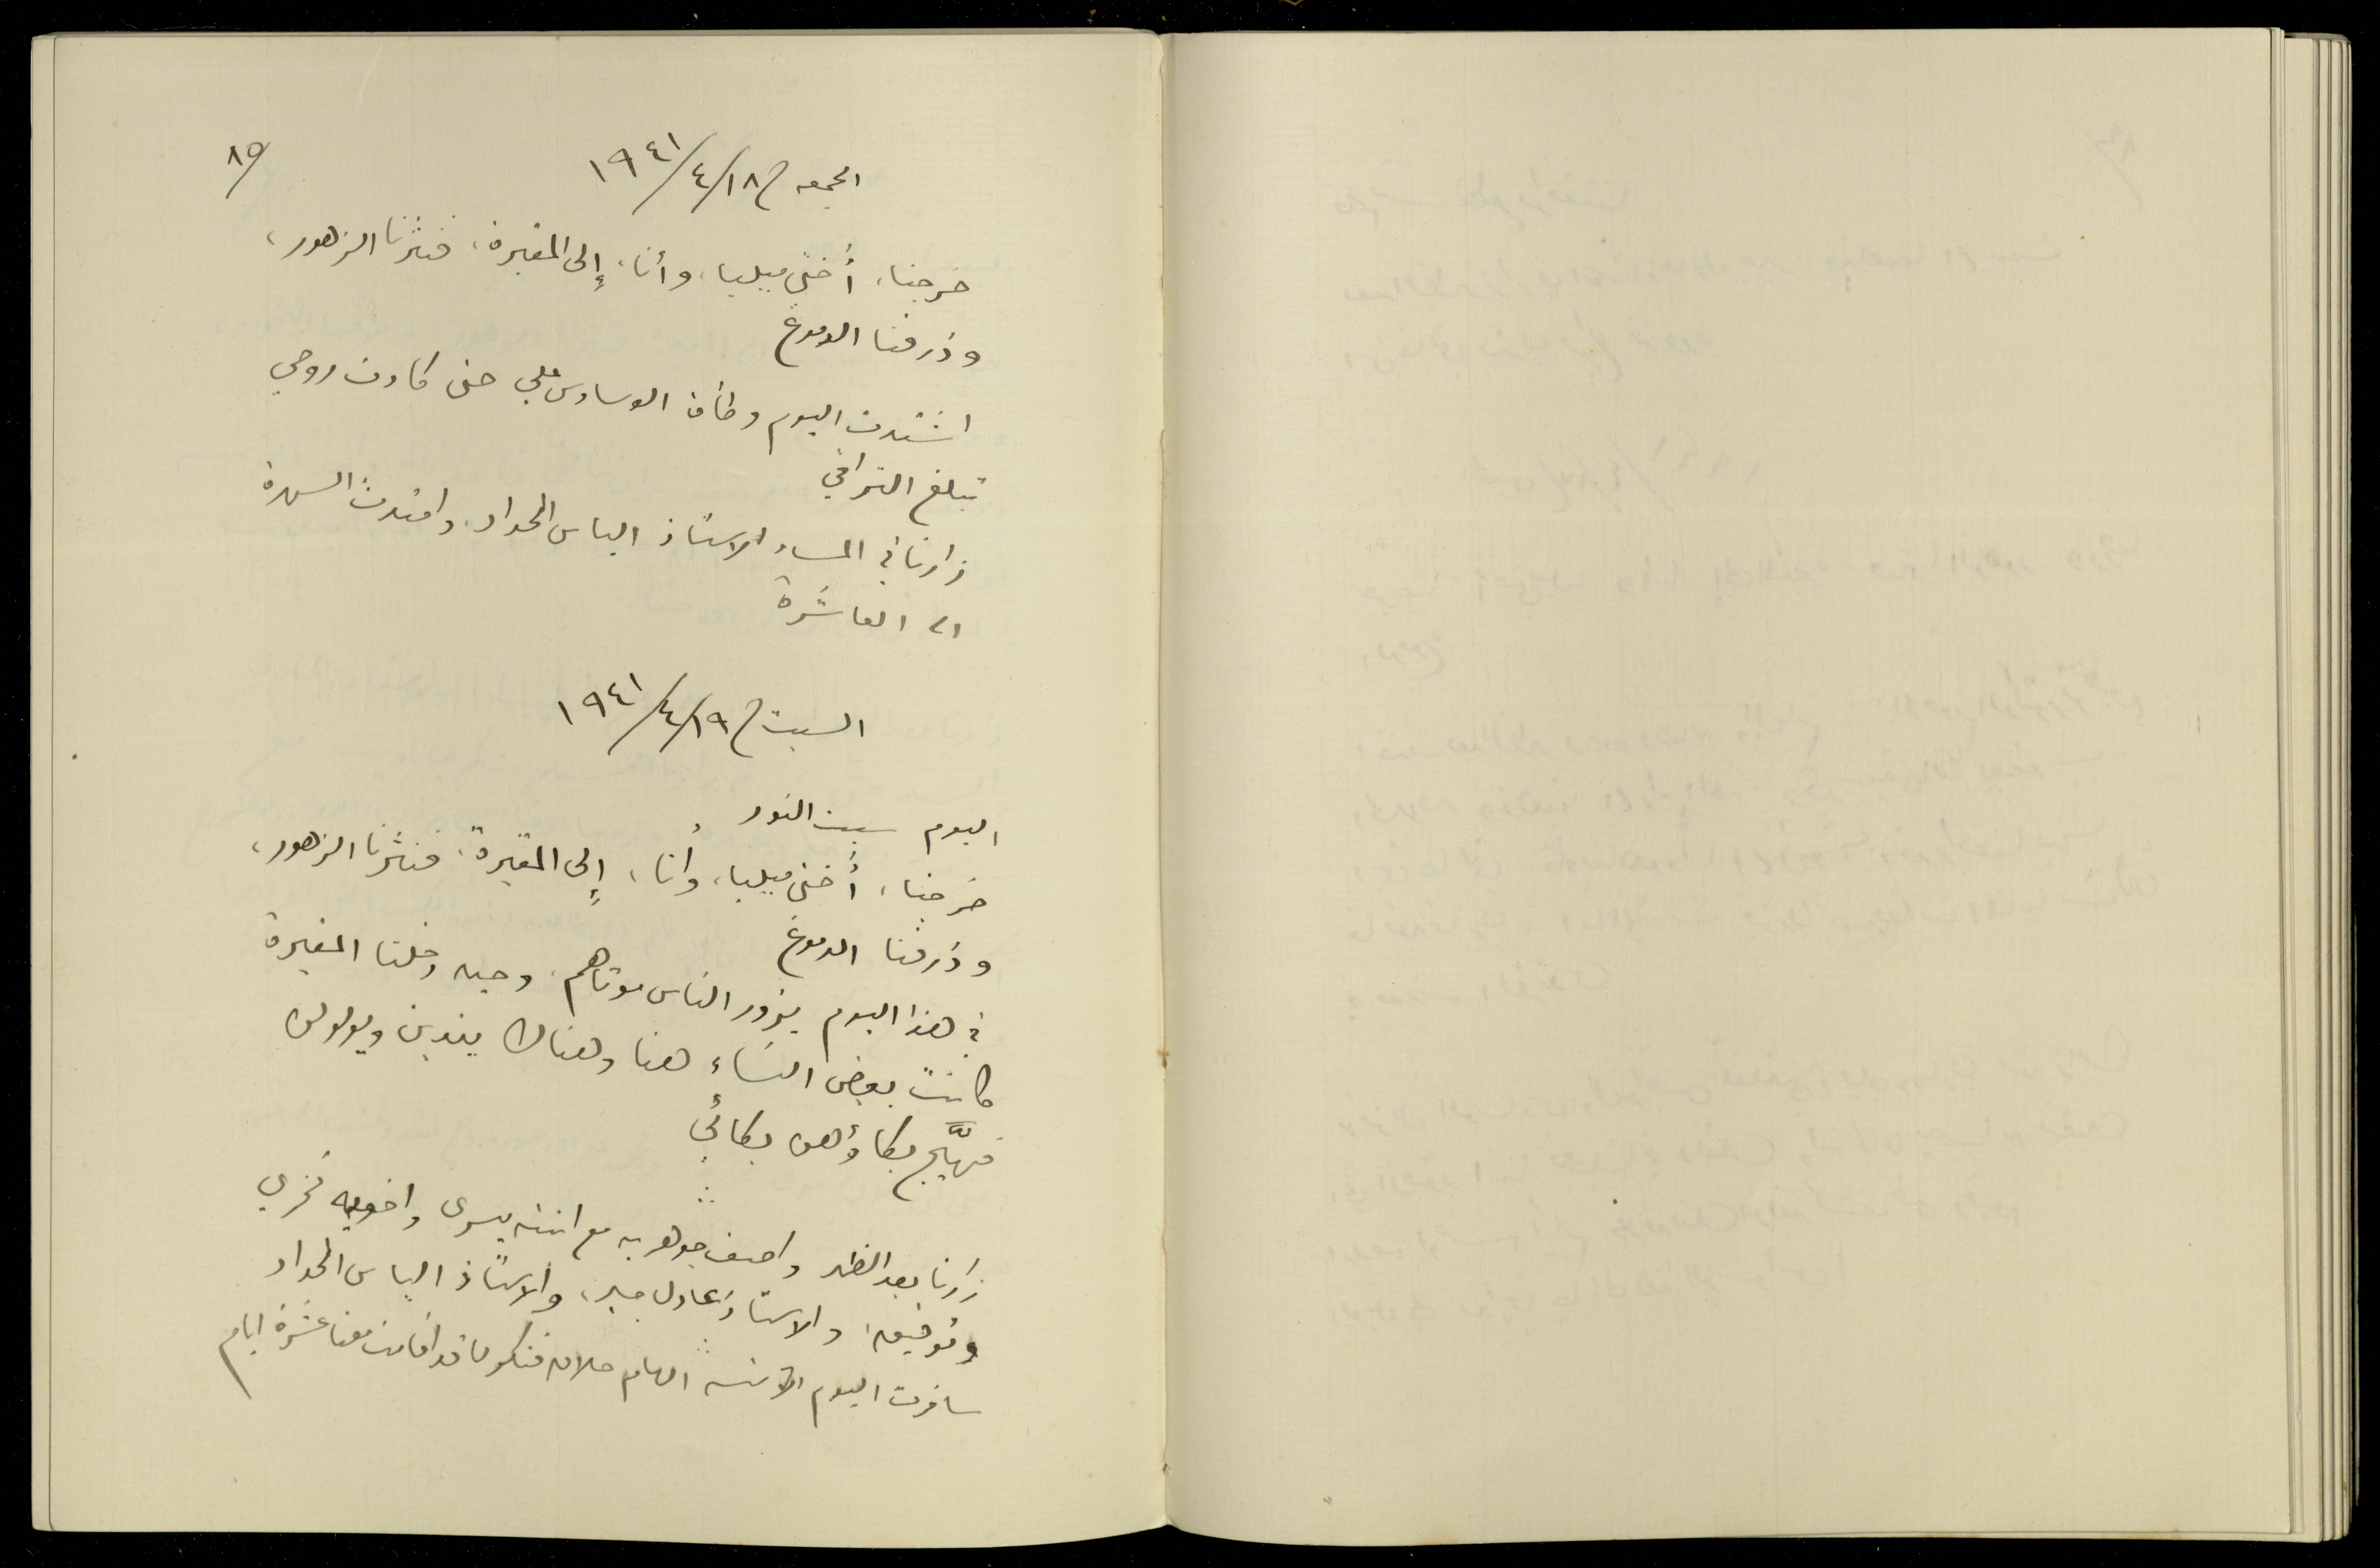 ٨٥
الجمعه في ١٨/٤/١٩٤١
خرجنا، أختي ميليا، وأنا، إلى المقبرة، فنثرنا الزهور،
وذرفنا الدموع
اشتدت اليوم وطأة الوساوس علي حتى كادت روحي
تبلغ التراقي
زارنا في المساء الاستاذ الياس الحداد، وامتدت السهرة
الى العاشرة
السبت في ١٩/٤/١٩٤١
اليوم سبت النور
خرجنا، أختي ميليا، وأنا، إلى المقبرة، فنثرنا الزهور،
وذرفنا الدموع
في هذا اليوم يزور الناس موتاهم، وحين دخلنا المقبرة
كانت بعض النساء هنا وهناك يندبن ويولولن
فهيَّج بكاؤهن بكائي
زارنا بعد الظهر واصف جوهريه مع ابنته يسرى واخويه فخري
وتوفيق، والاستاذ عادل جبر، والاستاذ الياس الحداد
سافرت اليوم الآنسة الهام قد اقامت معنا عشرة ايام